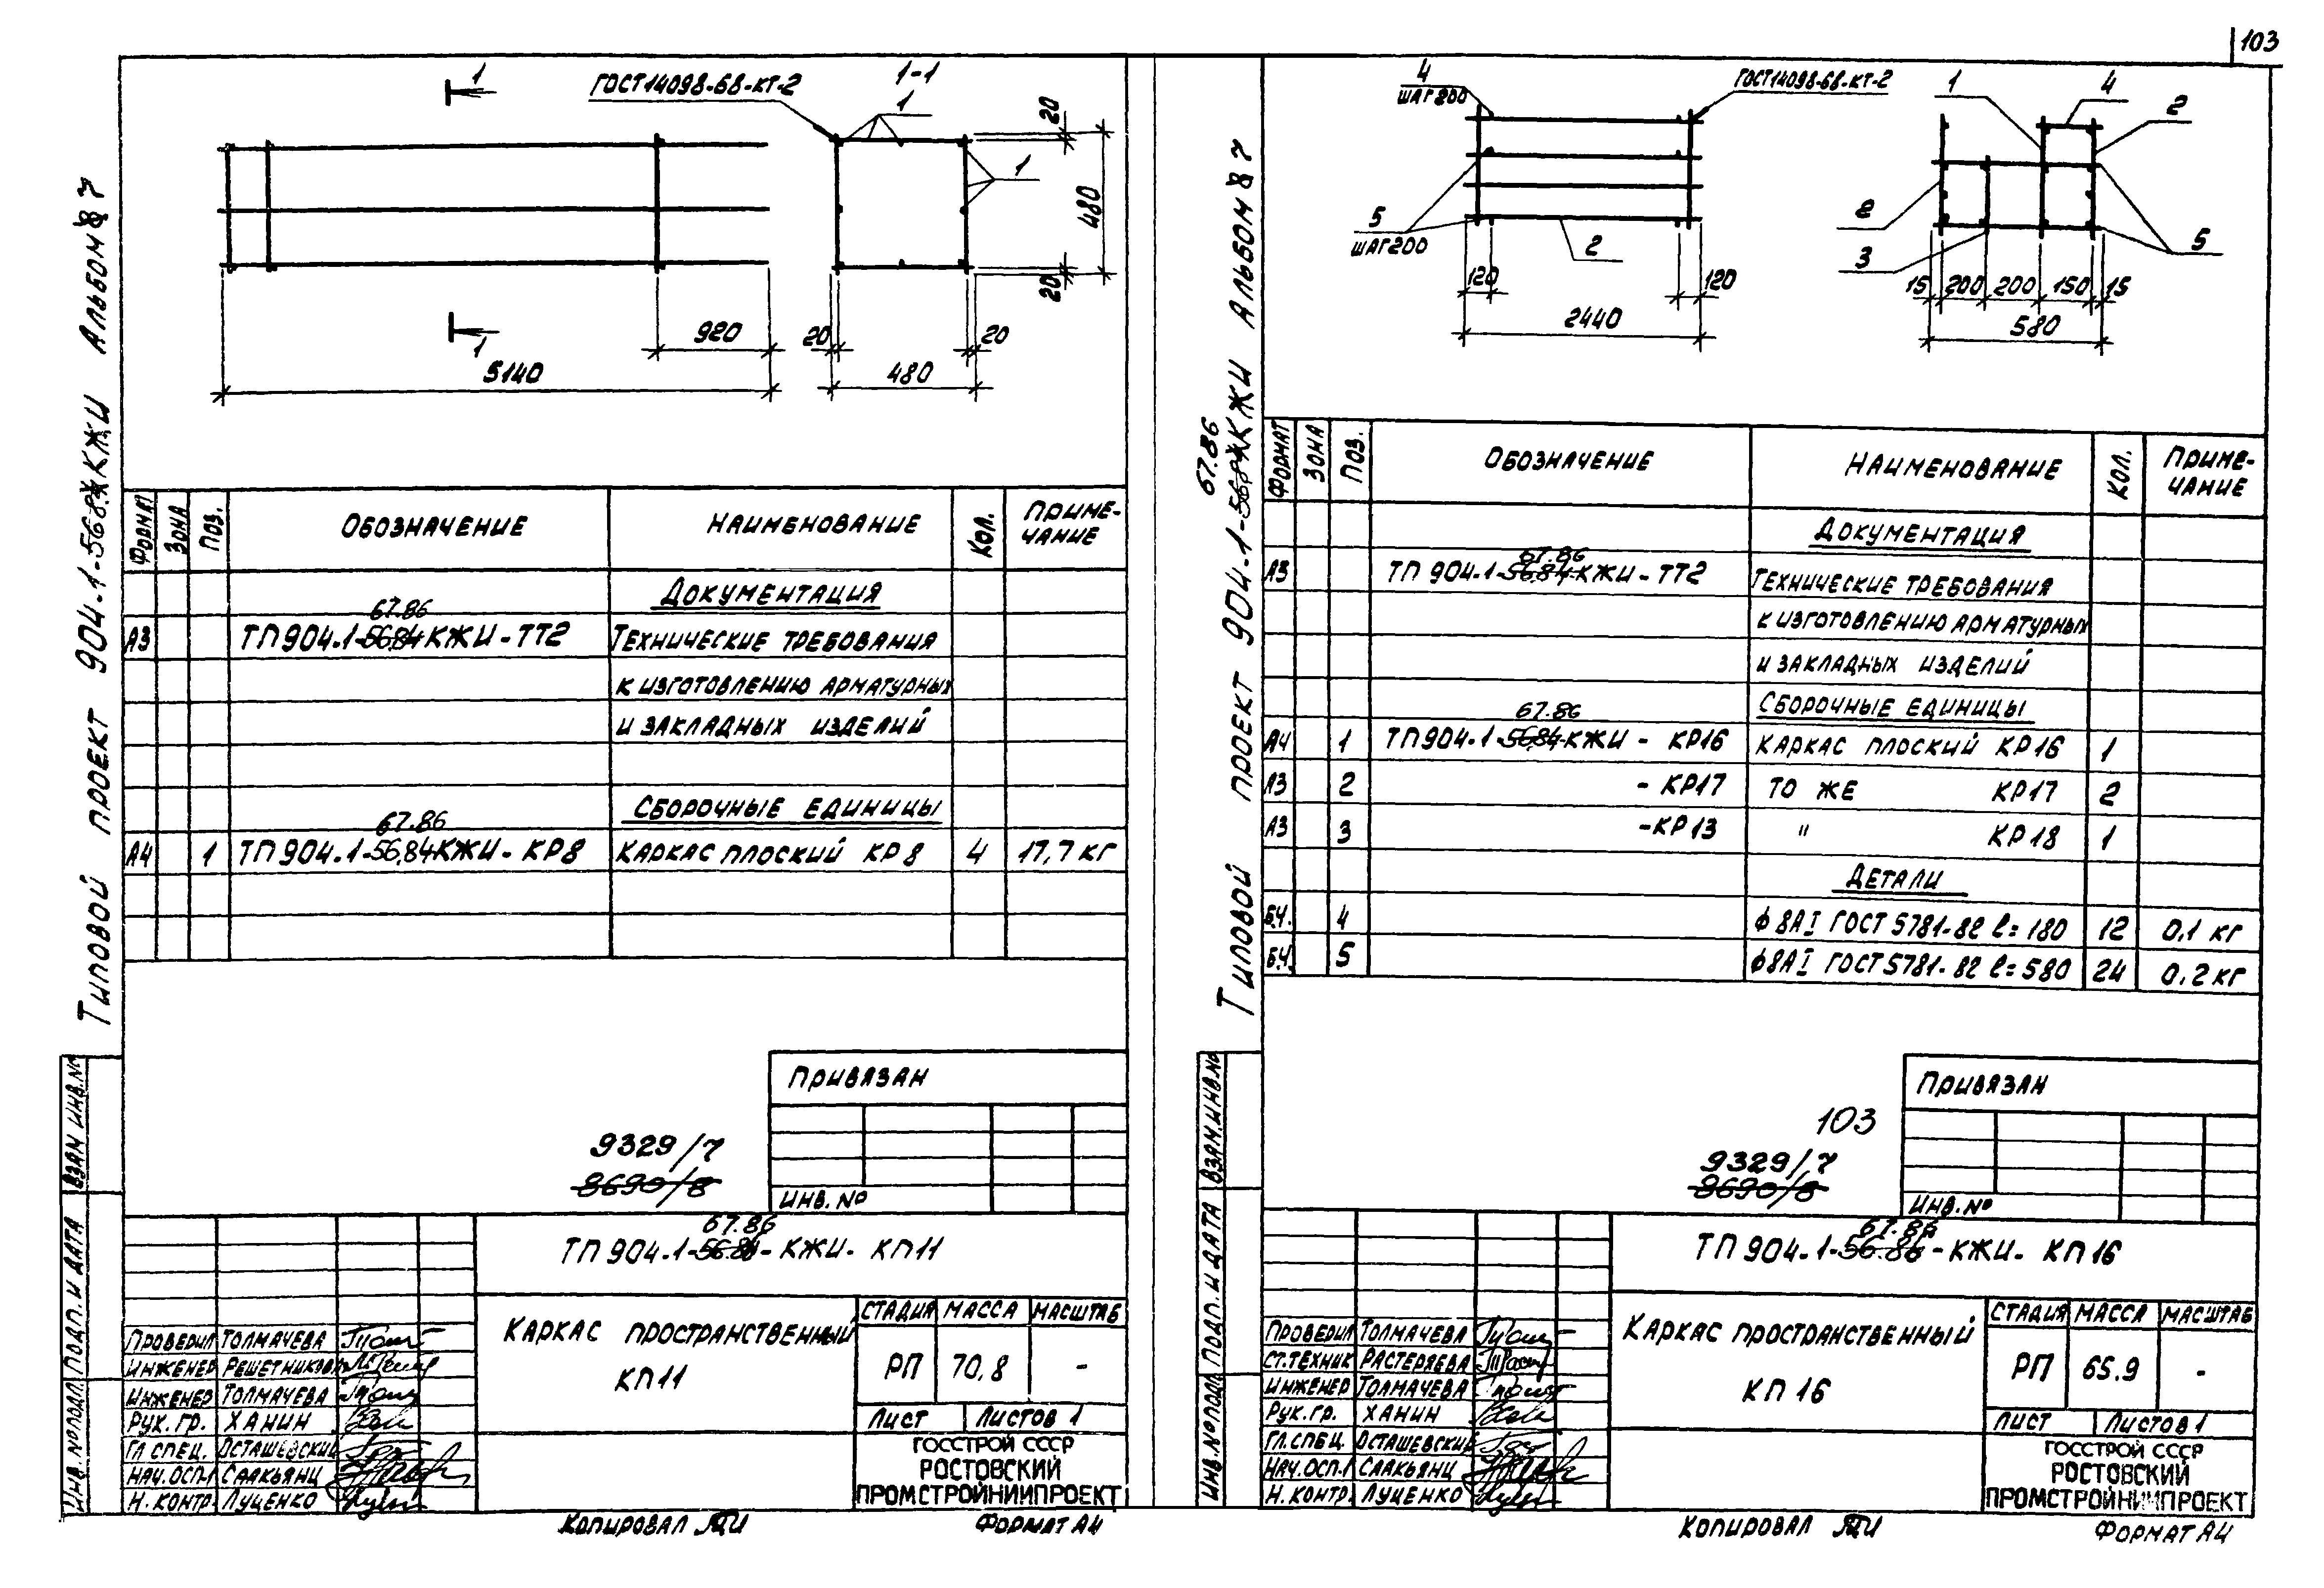 103
1
ГОСТ 14098-68-КТ-2
1-1
1
1
20
480
20
1
920
5140
20
20
480
Типовой проект 904-1-56.84 КЖИ Альбом 8 7
Формат
Зона
Поз.
Обозначение
Наименование
Кол.
Примечание
Документация
67.86
А3 ТП 904-1-56.84 КЖИ-ТТ2 Технические требования
к изготовлению арматурных
и закладных изделий
Сборочные единицы
67.86
А4 1 ТП 904-1-56.84 КЖИ-КР8 Каркас плоский КР8 4 17,7 кг
Привязан
9329/7
8690/8
Инв. №
67.86
ТП 904-1-56.86-КЖИ-КП11
Каркас пространственный
КП11
Стадия Масса Масштаб
РП 70,8 -
Лист Листов 1
ГОССТРОЙ СССР
РОСТОВСКИЙ
ПРОМСТРОЙНИИПРОЕКТ
Проверил Толмачева
Инженер Решетникова
Инженер Толмачева
Рук. гр. Ханин
Гл. спец. Осташевский
Нач. ОСП-1 Саакьянц
Н. контр. Луценко
Взам. инв. №
Подп. и дата
Инв. № подл.
Копировал
Формат А4
4
шаг 200
ГОСТ 14098-68-КТ-2
5
шаг 200
2
120
120
2440
1
4
2
2
3
5
15 200 200 150 15
580
67.86
Типовой проект 904-1-56.84 КЖИ Альбом 8 7
Формат
Зона
Поз.
Обозначение
Наименование
Кол.
Примечание
Документация
67.86
А3 ТП 904-1-56.84 КЖИ-ТТ2 Технические требования
к изготовлению арматурных
и закладных изделий
Сборочные единицы
67.86
А4 1 ТП 904-1-56.84 КЖИ - КР16 Каркас плоский КР16 1
А3 2 - КР17 То же КР17 2
А3 3 -КР13 " КР18 1
Детали
Б.Ч. 4 ф8АI ГОСТ 5781-82 l=180 12 0,1 кг
Б.Ч. 5 ф8АI ГОСТ 5781-82 l=580 24 0,2 кг
Привязан
103
9329/7
8690/8
Инв. №
67.86
ТП 904-1-56.86-КЖИ-КП16
Каркас пространственный
КП 16
Стадия Масса Масштаб
РП 65.9 -
Лист Листов 1
ГОССТРОЙ СССР
РОСТОВСКИЙ
ПРОМСТРОЙНИИПРОЕКТ
Проверил Толмачева
Ст. техник Растеряева
Инженер Толмачева
Рук. гр. Ханин
Гл. спец. Осташевский
Нач. ОСП-1 Саакьянц
Н. контр. Луценко
Взам. инв. №
Подп. и дата
Инв. № подл.
Копировал
Формат А4